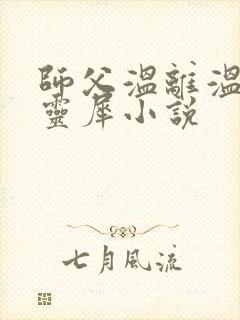 師父溫離溫
靈犀小說
七月風流